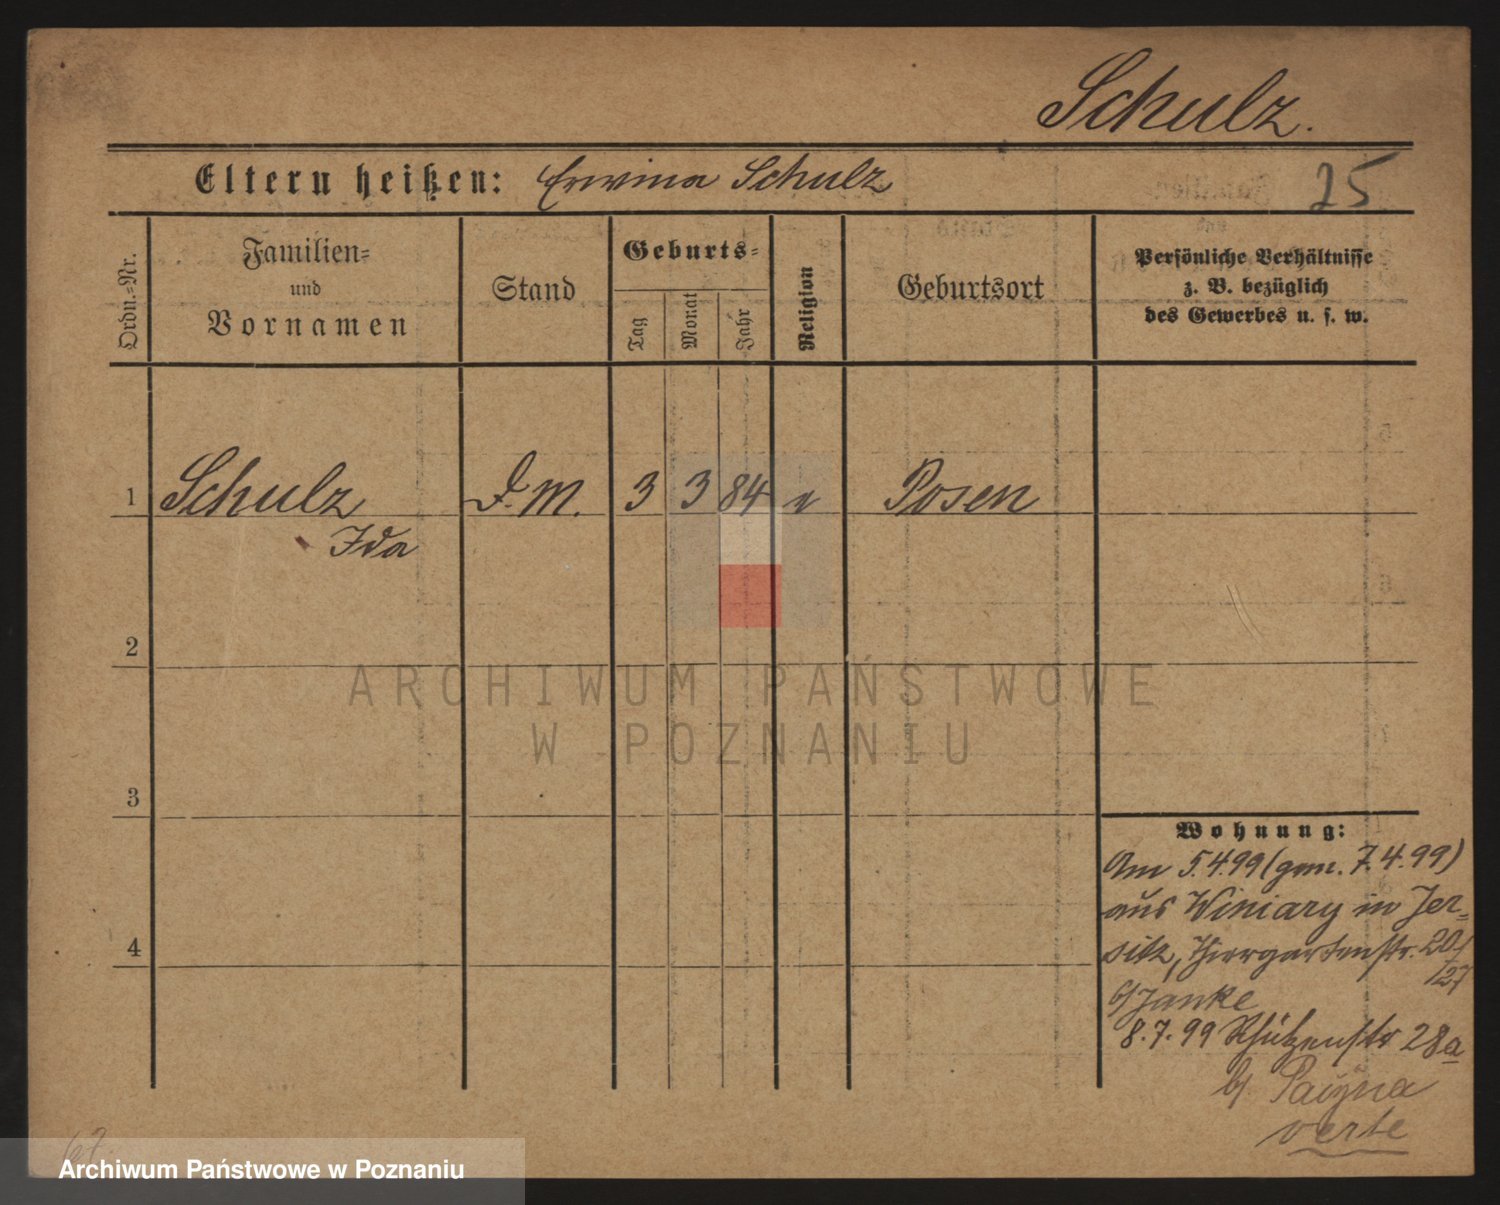 Schulz.
Eltern heißen: Erwina Schulz
25
Ordn.-Nr.
Familien-
und
Vornamen
Stand
Geburts-
Tag
Monat
Jahr
Religion
Geburtsort
Persönliche Verhältnisse
z. B. bezüglich
des Gewerbes u. s. w.
1 Schulz D.M. 3 3 84 Posen
Ida
2
3
4
Wohnung:
Am 5.4.99 (gem. 7.4.99)
aus Winiary in Jer-
sitz, Thiergartenstr. 20/
127
b/ Janke
8.7.99 Schützenstr 28a
b/
verte
ARCHIWUM PAŃSTWOWE
W POZNANIU
67
Archiwum Państwowe w Poznaniu